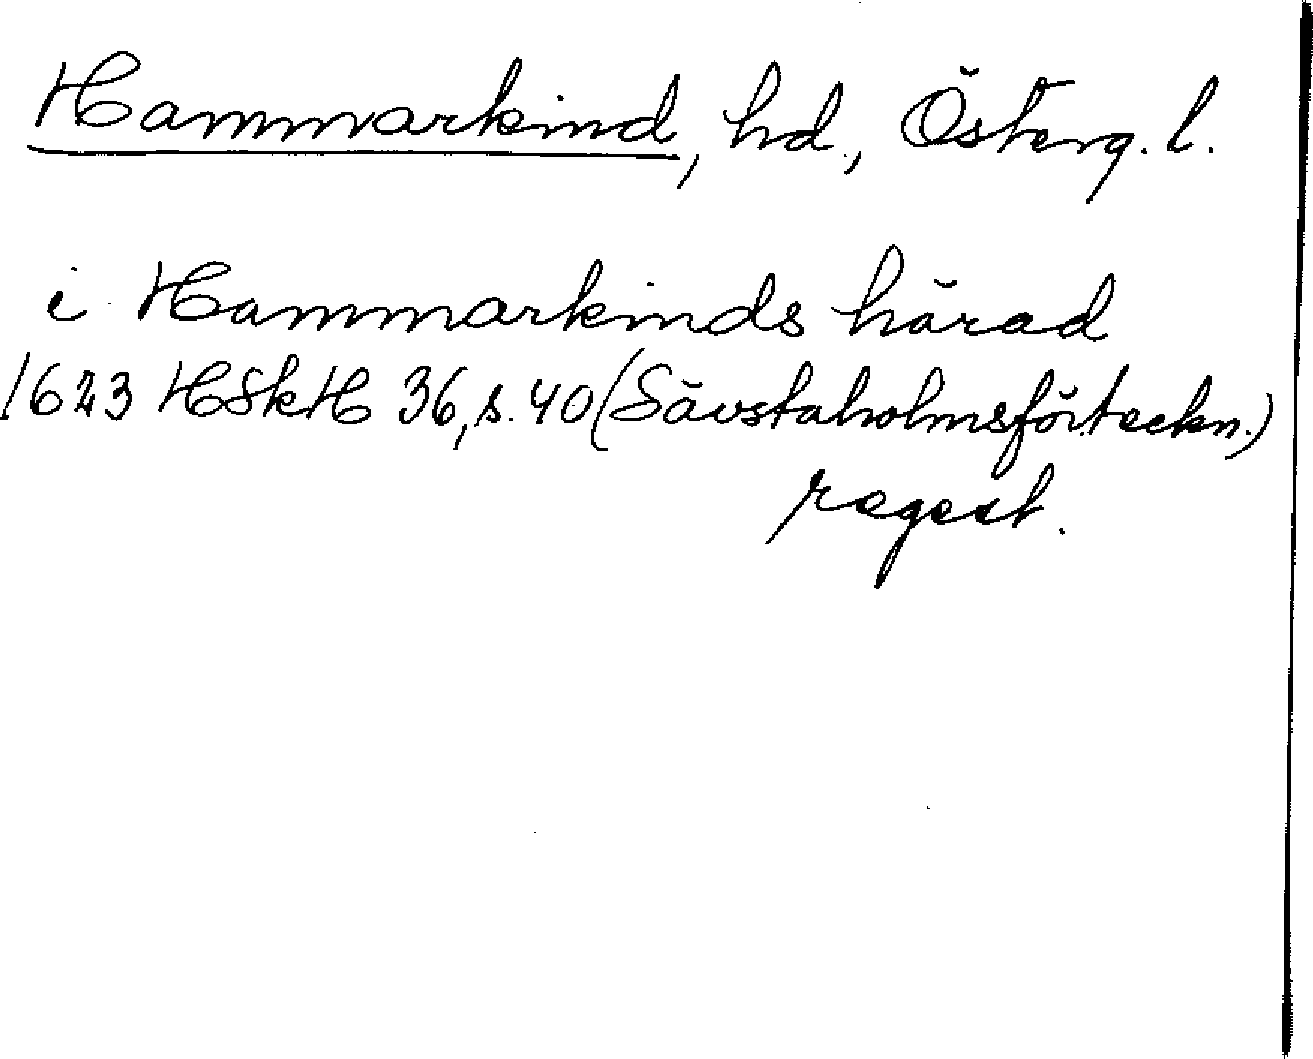 Hammarkind, hd., Österg. l.
i Hammarkinds härad
1623 HSkH 36, s. 40 (Sävstaholmsförteckn.)
regest.